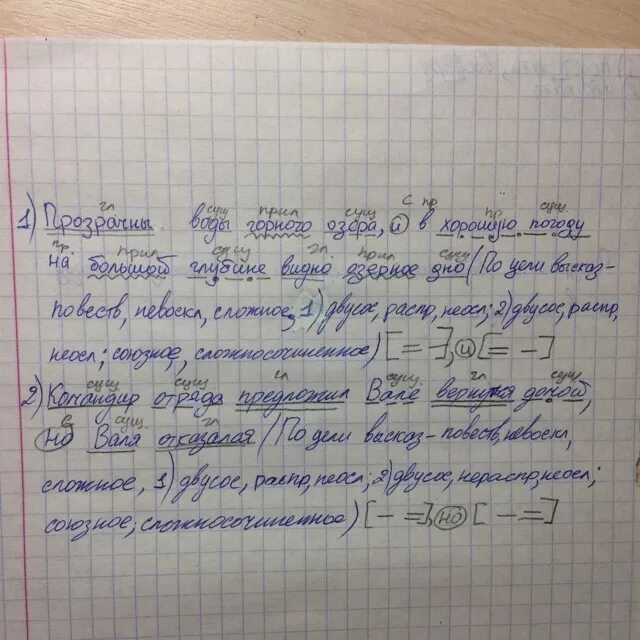 гл сущ прил сущ с пр пр. сущ
1) Прозрачны воды горного озера, и в хорошую погоду
пр. прил сущ гл прил сущ
на большой глубине видно озерное дно (По цели высказ-
повеств, невоскл, сложное, 1) двусос, распр, неосл; 2) двусос, распр,
неосл; союзное, сложносочиненное) [= -], и [= -]
сущ сущ гл сущ. гл сущ.
2) Командир отряда предложил Вале вернуться домой,
с сущ. гл
но Валя отказалая (По цели высказ-повеств, невоскл,
сложное, 1) двусос, распр, неосл; 2) двусос, нераспр, неосл;
союзное; сложносочиненное) [- =], но [- =]